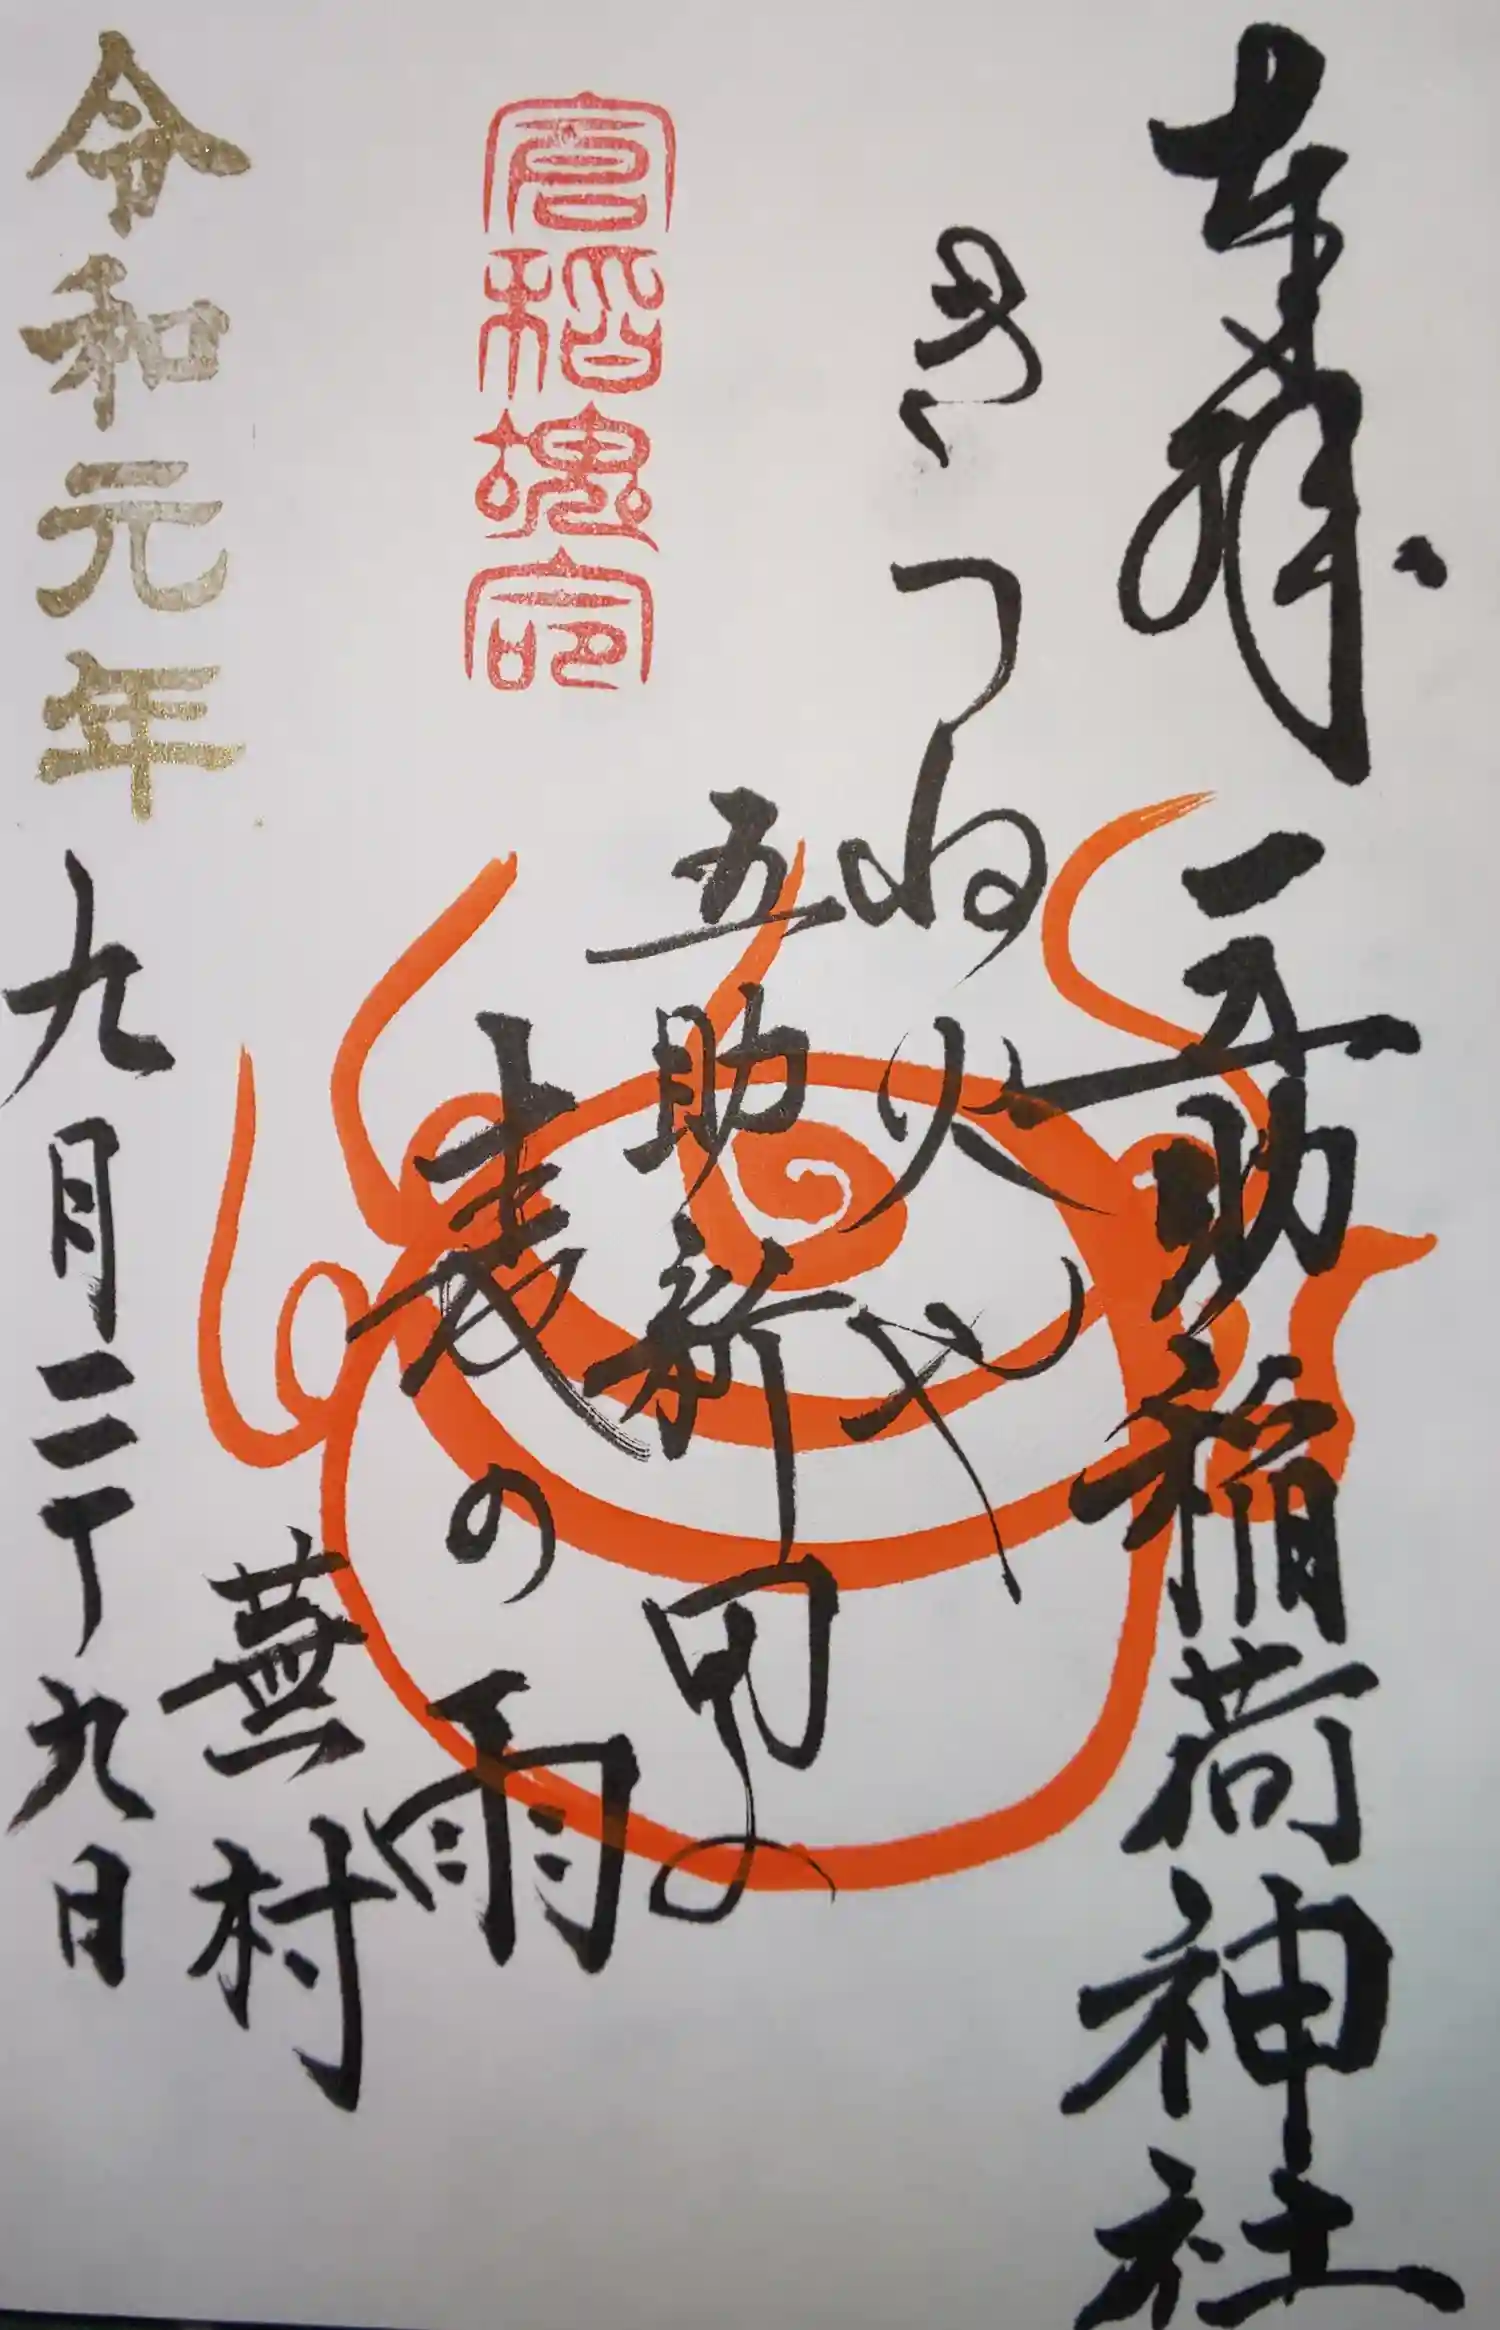 奉拝 五助稲荷神社
きつね火や
五助新田の
麦の雨
倉稲魂命
蕪村
令和元年九月二十九日